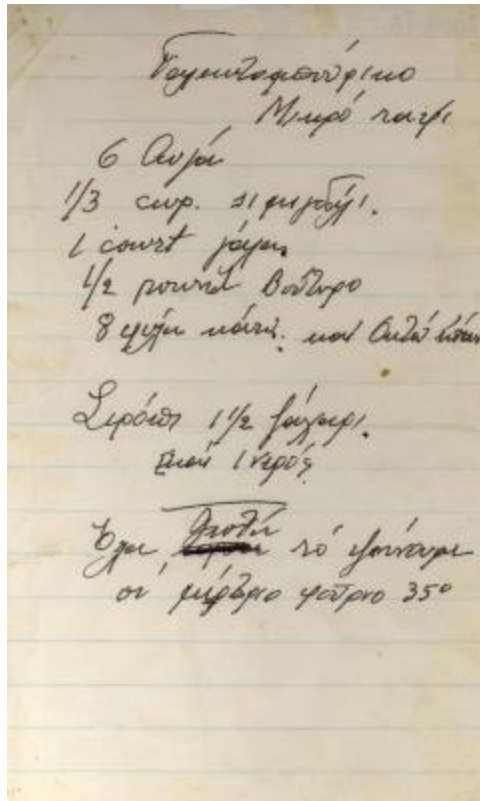 Γαλακτομπούρικο
Μικρό ταψι
6 Αυγά
1/3 cup. σιμιγδάλι.
1 court γάλα.
1/2 pound Βούτυρο
8 φύλα κάτω. και Οκτώ
Σιρόπι 1 1/2 ζάχαρι.
και 1 νερό
τό
σέ μέτριο φούρνο 350